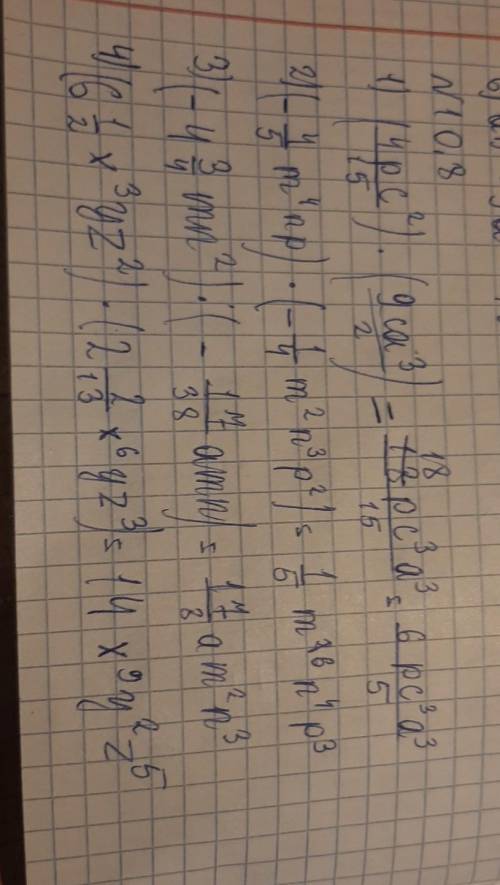 N10,8
1) (4pc²/15) · (9ca³/2) = 18pc³a³/15 = 6pc³a³/5
2) (-4/5 m⁴np) · (-1/4 m²n³p²) = 1/5 m⁶n⁴p³
3) (-4 3/4 mn²) · (-17/38 amn) = 17/8 am²n³
4) (6 1/2 x³yz²) · (2 2/13 x⁶yz³) = 14x⁹y²z⁵